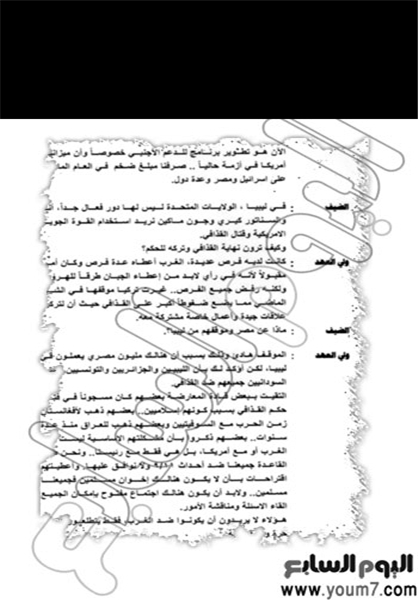 الآن هو تطوير برنامج للدعم الأجنبي خصوصاً وأن ميزان
أمريكا في أزمة حالياً .. صرفنا مبلغ ضخم في العام الم
على اسرائيل ومصر وعدة دول.
الضيف : في ليبيا، الولايات المتحدة ليس لها دور فعال جداً،
والسناتور كيري وجون ماكين تريد استخدام القوة الجوية
الأمريكية وقتال القذافي.
وكيف ترون نهاية القذافي وتركه للحكم؟
ولي العهد : كانت لديه فرص عديدة، الغرب أعطاه عدة فرص وكان
مقبولاً لأنه في رأي لابد من إعطاء الجبان طرقاً للهرو
ولكنه رفض جميع الفرص.. غيرت تركيا موقفها في الش
الماضي مما يضع ضغوطاً أكبر على القذافي حيث أن لتركيا
علاقات جيدة وأعمال خاصة مشتركة معه.
الضيف : ماذا عن مصر وموقفهم من ليبيا؟
ولي العهد : الموقف هادئ وذلك بسبب أن هنالك مليون مصري يعملون في
ليبيا، لكن أؤكد لك بأن الليبيين والجزائريين والتونسيين
السودانيين جميعهم ضد القذافي.
التقيت ببعض قيادة المعارضة بعضهم كان مسجوناً في
حكم القذافي بسبب كونهم إسلاميين. بعضهم ذهب لأفغانستان
زمن الحرب مع السوفيتيين وبعضهم ذهب للعراق منذ عدة
سنوات.. بعضهم ذكروا بأن مشكلتهم الأساسية ليست
الغرب أو مع أمريكا، بل هي فقط مع رئيسنا.. ونحن
القاعدة جميعنا ضد أحداث ولا نوافق عليها، وأعطيتهم
اقتراحات بأن لا يكون هنالك إخوان مسلمين فجميعنا
مسلمين.. ولابد أن يكون هنالك اجتماع مفتوح بإمكان الجميع
القاء الاسئلة ومناقشة الأمور.
هؤلاء لا يريدون أن يكونوا ضد الغرب، فقط يتطلعون
حرة
اليوم السابع
www.youm7.com